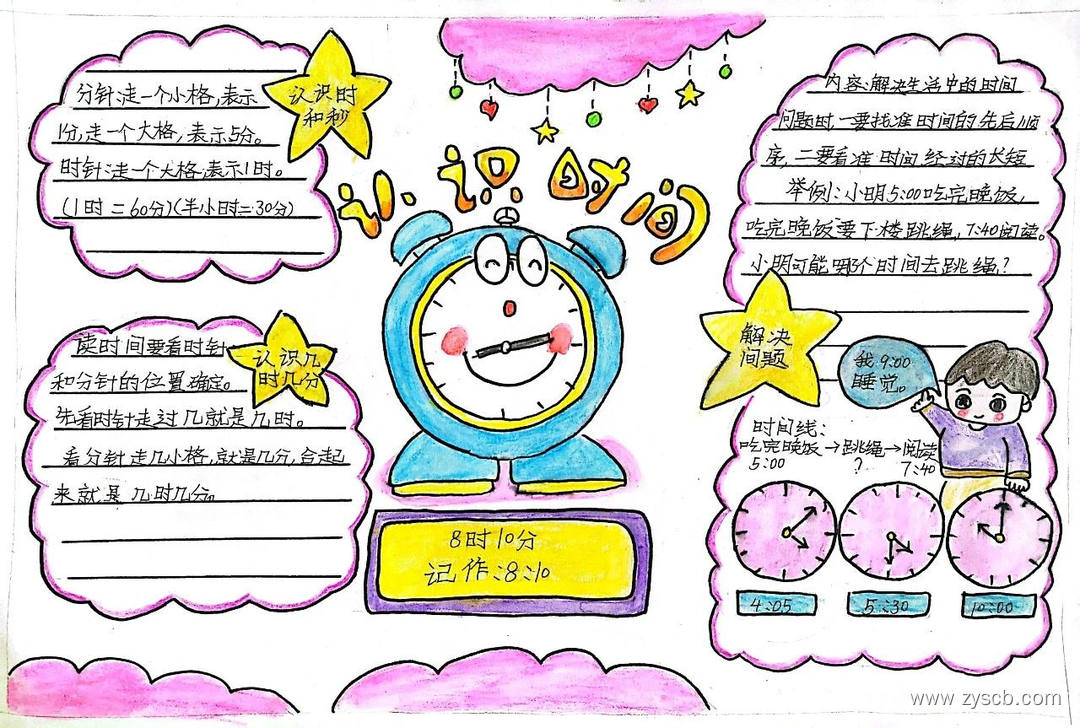 认识时间
认识时
和秒
分针:走一个小格,表示
1分,走一个大格,表示5分。
时针:走一个大格,表示1时。
(1时=60分)(半小时=30分)
认识几
时几分
读时间要看时针
和分针的位置确定。
先看时针走过几就是几时。
看分针走几小格,就是几分,合起
来就是几时几分。
8时10分
记作:8:10
内容:解决生活中的时间
问题时,一要找准时间的先后顺
序,二要看准时间经过的长短
举例:小明5:00吃完晚饭,
吃完晚饭要下楼跳绳,7:40阅读。
小明可能哪个时间去跳绳?
解决
问题
我9:00
睡觉。
时间线:
吃完晚饭→跳绳→阅读
5:00 ? 7:40
4:05 5:30 10:00
www.zyscb.com